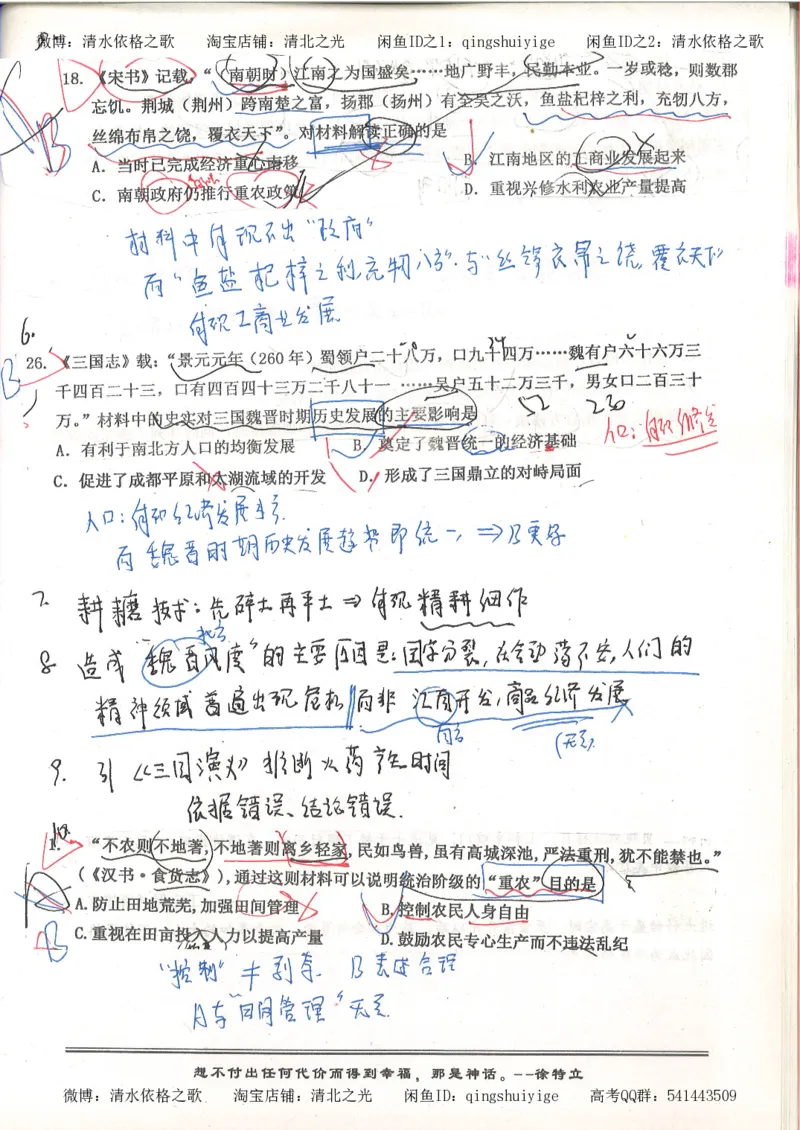 微博：清水依格之歌 淘宝店铺：清北之光 闲鱼ID之1：qingshuiyige 闲鱼ID之2：清水依格之歌
18. 《宋书》记载，“（南朝时）江南之为国盛矣……地广野丰，民勤本业。一岁或稔，则数郡
忘饥。荆城（荆州）跨南楚之富，扬郡（扬州）有全吴之沃，鱼盐杞梓之利，充牣八方，
丝绵布帛之饶，覆衣天下”。对材料解读正确的是
A．当时已完成经济重心南移 B．江南地区的工商业发展起来
C．南朝政府仍推行重农政策 D．重视兴修水利农业产量提高
材料中体现不出“政府”
而“鱼盐杞梓之利充牣八方”与“丝绵衣帛之饶，覆衣天下”
体现工商业发展
6.
26. 《三国志》载：“景元元年（260年）蜀领户二十八万，口九十四万……魏有户六十六万三
千四百二十三，口有四百四十三万二千八十一……吴户五十二万三千，男女口二百三十
万。”材料中的史实对三国魏晋时期历史发展的主要影响是
52 230
A．有利于南北方人口的均衡发展 B．奠定了魏晋统一的经济基础
C．促进了成都平原和太湖流域的开发 D．形成了三国鼎立的对峙局面
人口：体现经济发展
而魏晋时期历史发展趋势即统一，⇒B更好
7. 耕耱技术：先碎土再平土⇒体现精耕细作
8. 造成“魏晋风度”的主要原因是：国家分裂，社会动荡不安，人们的
精神领域普遍出现危机，而非江南开发，商品经济发展
（无关）
9. 引《三国演义》推断火药产生时间
依据错误、结论错误.
10.
1. “不农则不地著，不地著则离乡轻家，民如鸟兽，虽有高城深池，严法重刑，犹不能禁也。”
（《汉书·食货志》），通过这则材料可以说明统治阶级的“重农”目的是
A.防止田地荒芜，加强田间管理 B.控制农民人身自由
C.重视在田亩投入人力以提高产量 D.鼓励农民专心生产而不违法乱纪
B表述合理
A与“田间管理”无关
想不付出任何代价而得到幸福，那是神话。--徐特立
微博：清水依格之歌 淘宝店铺：清北之光 闲鱼ID：qingshuiyige 高考QQ群：541443509